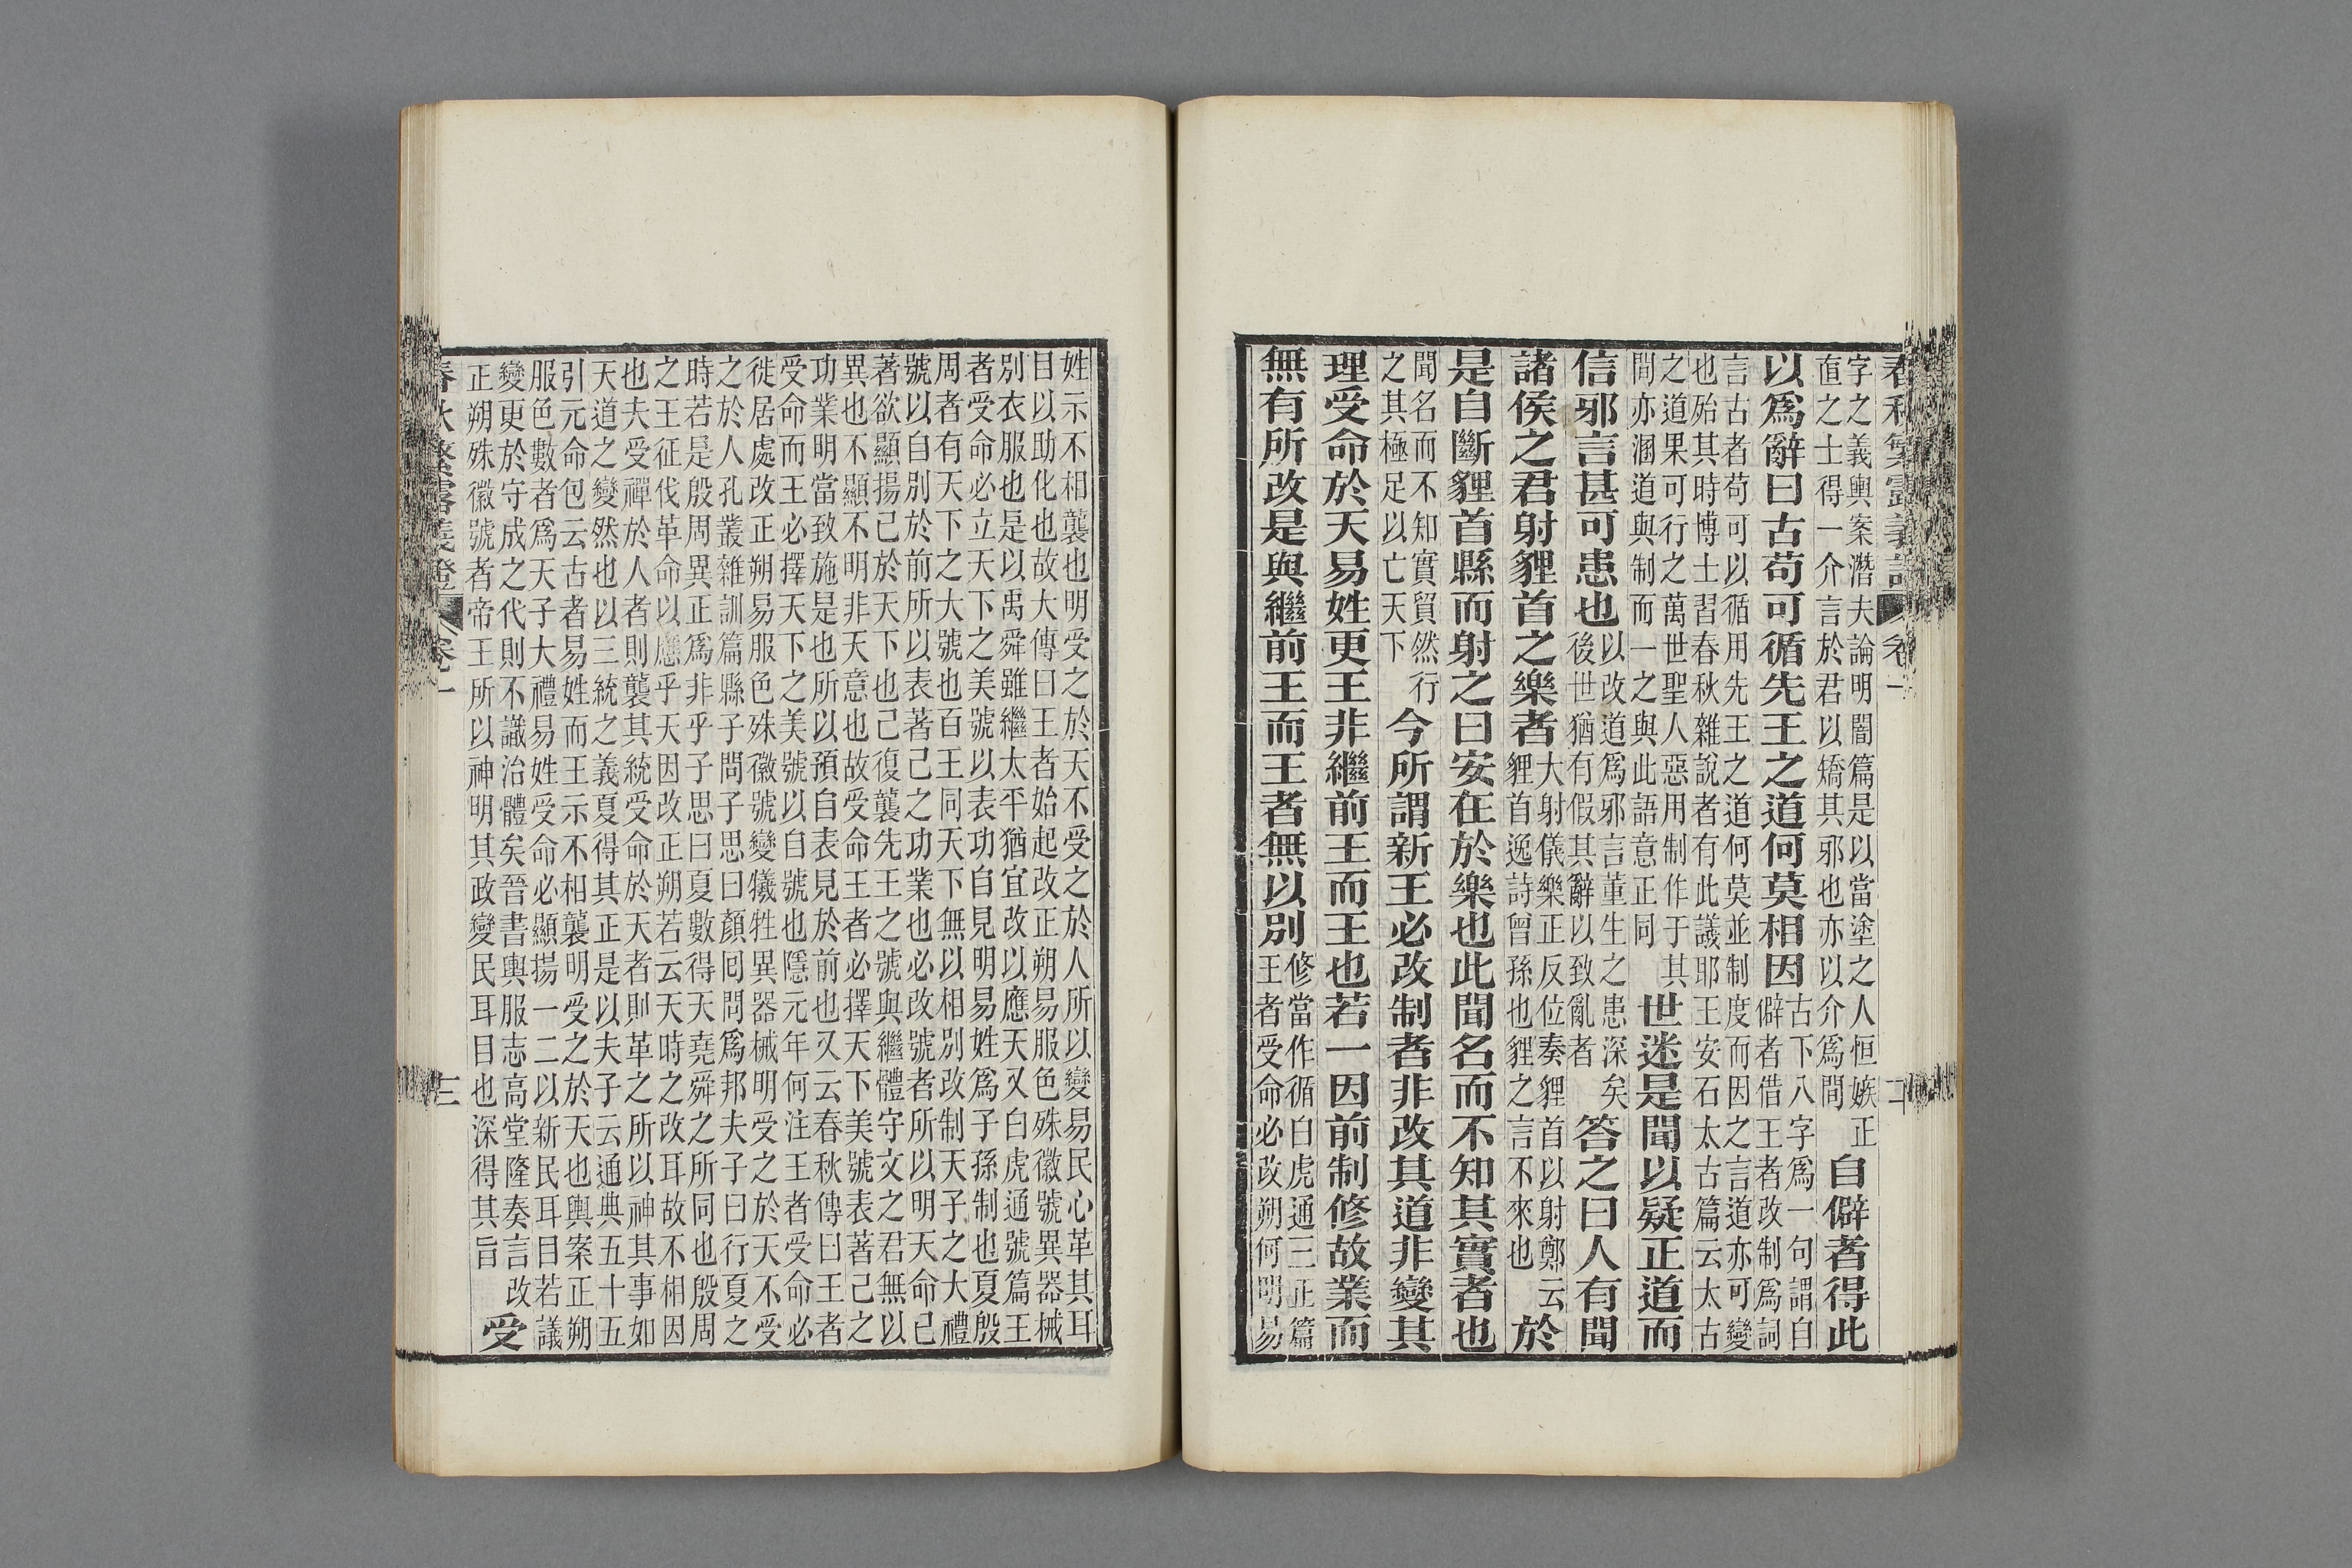 春秋繁露義證 卷一 二
字之義輿案潛夫論明闇篇是以當塗之人恒嫉正
直之士得一介言於君以矯其邪也亦以介爲間
自僻者得此
以爲辭曰古苟可循先王之道何莫相因
古下八字爲一句謂自
僻者借王者改制爲詞
言古者苟可以循用先王之道何莫並制度而因之言道亦可變
也殆其時博士習春秋雜說者有此議耶王安石太古篇云太古
之道果可行之萬世聖人惡用制作于其
間亦溷道與制而一之與此語意正同
世迷是聞以疑正道而
信邪言甚可患也
以改道爲邪言董生之患深矣
後世猶有假其辭以致亂者
答之曰人有聞
諸侯之君射貍首之樂者
大射儀樂正反位奏貍首以射鄭云
貍首逸詩曾孫也貍之言不來也
於
是自斷貍首縣而射之曰安在於樂也此聞名而不知其實者也
聞名而不知實貿然行
之其極足以亡天下
今所謂新王必改制者非改其道非變其
理受命於天易姓更王非繼前王而王也若一因前制修故業而
無有所改是與繼前王而王者無以別
修當作循白虎通三正篇
王者受命必改朔何明易
姓示不相襲也明受之於天不受之於人所以變易民心革其耳
目以助化也故大傳曰王者始起改正朔易服色殊徽號異器械
別衣服也是以禹舜雖繼太平猶宜改以應天又白虎通號篇王
者受命必立天下之美號以表功自見明易姓爲子孫制也夏殷
周者有天下之大號也百王同天下無以相別改制天子之大禮
號以自別於前所以表著己之功業也必改號者所以明天命已
著欲顯揚己於天下也己復襲先王之號與繼體守文之君無以
異也不顯不明非天意也故受命王者必擇天下美號表著己之
功業明當致施是也所以預自表見於前也又云春秋傳曰王者
受命而王必擇天下之美號以自號也隱元年何注王者受命必
徙居處改正朔易服色殊徽號變犧牲異器械明受之於天不受
之於人孔叢雜訓篇縣子問子思曰顏回問爲邦夫子曰行夏之
時若是殷周異正爲非乎子思曰夏數得天堯舜之所同也殷周
之王征伐革命以應乎天因改正朔若云天時之改耳故不相因
也夫受禪於人者則襲其統受命於天者則革之所以神其事如
天道之變然也以三統之義夏得其正是以夫子云通典五十五
引元命包云古者易姓而王示不相襲明受之於天也輿案正朔
服色數者爲天子大禮易姓受命必顯揚一二以新民耳目若議
變更於守成之代則不識治體矣晉書輿服志高堂隆奏言改
正朔殊徽號者帝王所以神明其政變民耳目也深得其旨
受
春秋繁露義證 卷一 三